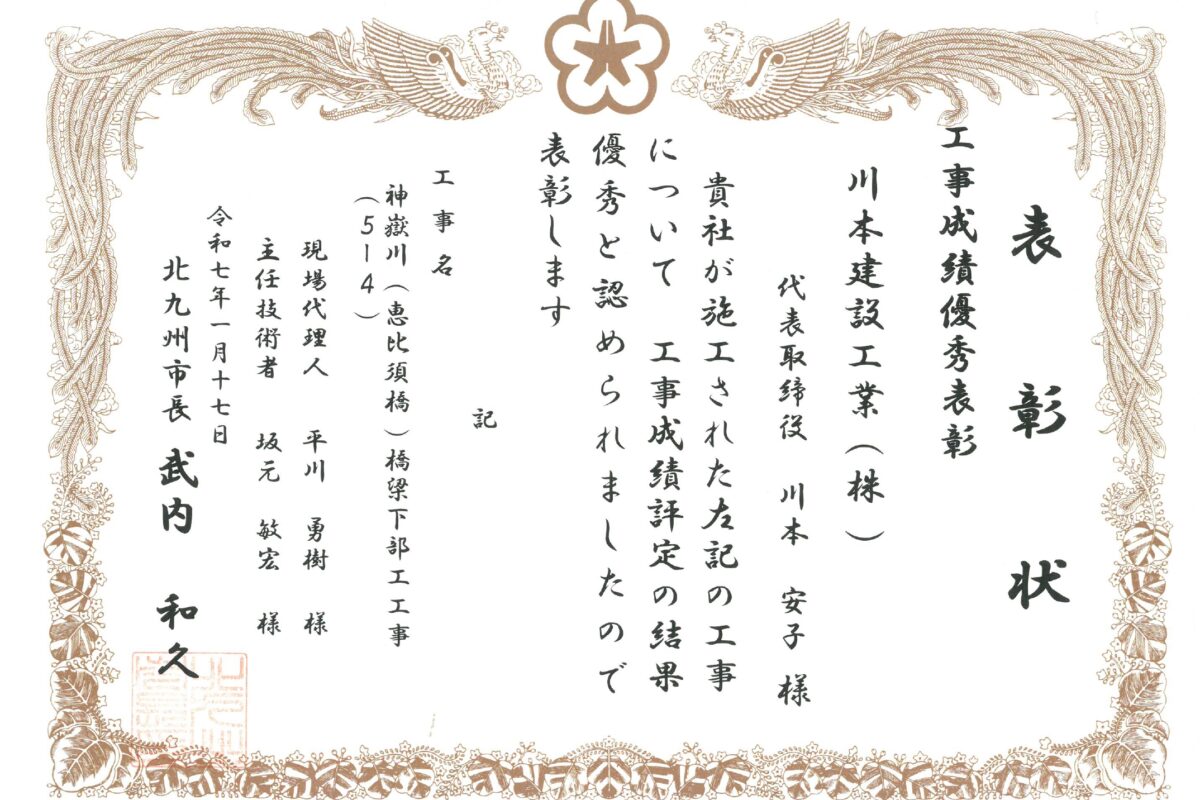 表彰状
工事成績優秀表彰
川本建設工業（株）
代表取締役 川本 安子 様
貴社が施工された左記の工事
について 工事成績評定の結果
優秀と認められましたので
表彰します
記
工事名
神嶽川（恵比須橋）橋梁下部工工事
（5-4）
現場代理人 平川 勇樹 様
主任技術者 坂元 敏宏 様
令和七年一月十七日
北九州市長 武内 和久